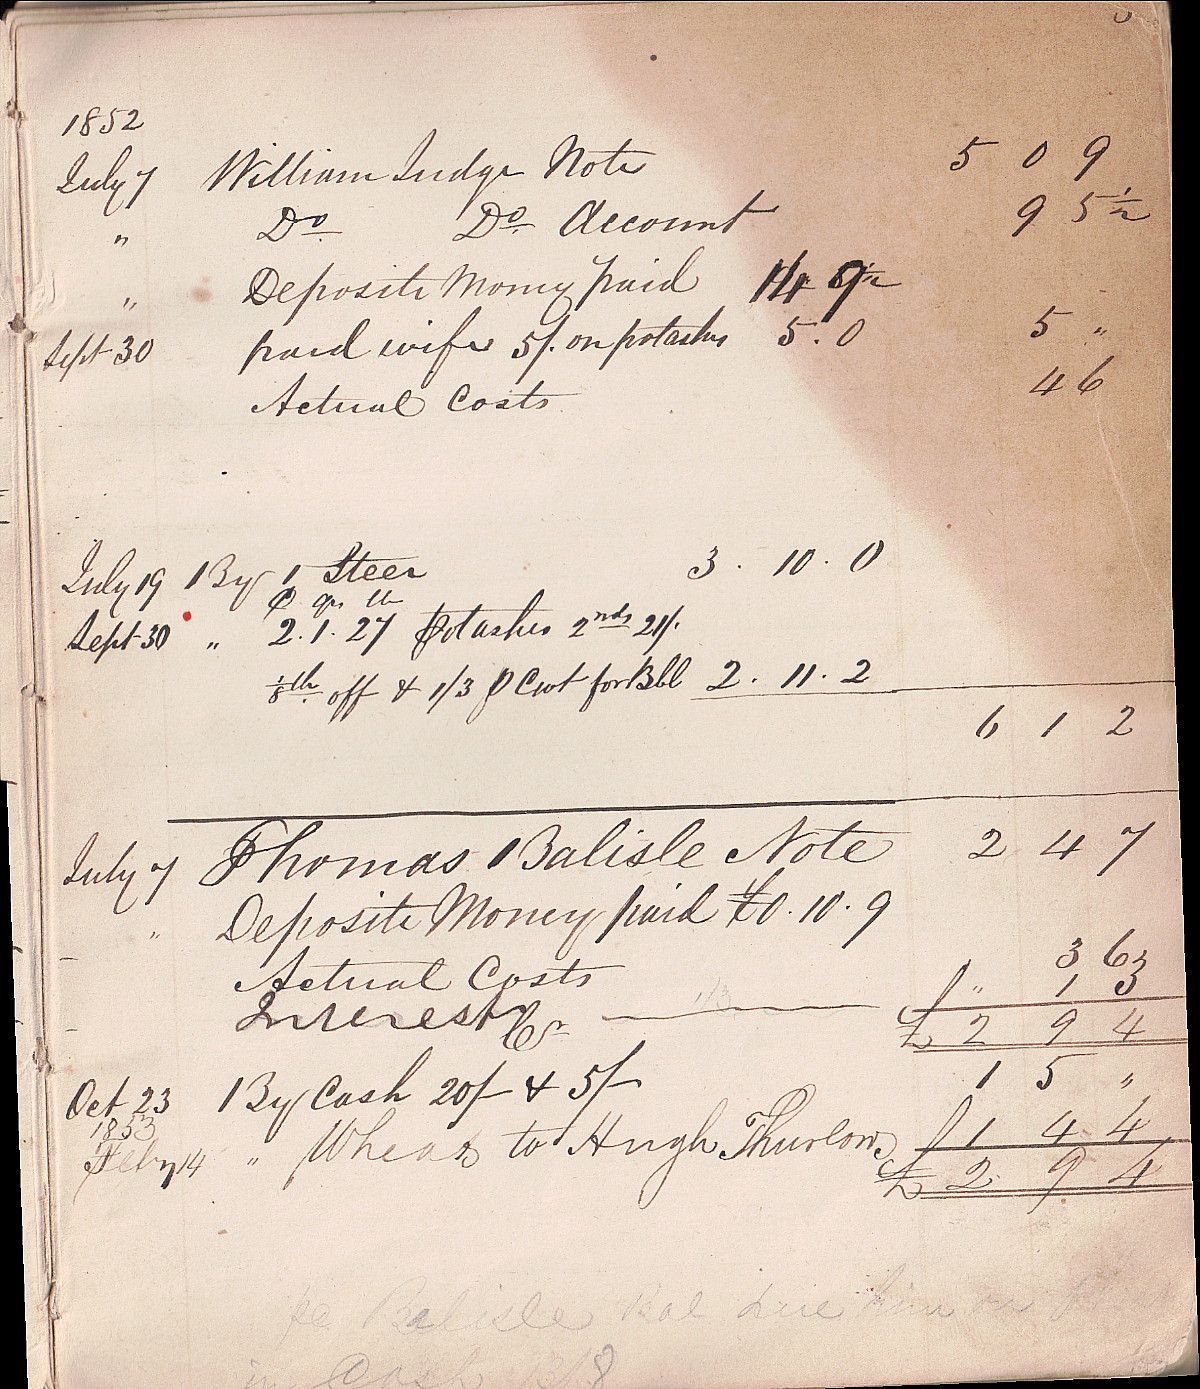 1852
July 7 William Judge Note 5 0 9
" Do Do Account 9 5½
" Deposite Money paid 14
Sept 30 paid wife 5/. on potashes 5.0 5 "
Actual Costs 4 6
July 19 By 1 Steer 3. 10. 0
C qrs lb
Sept 30 " 2.1.27 Potashes 2nds 21/.
⅛th off & 1/3 P Cwt for Bbl 2. 11. 2
6 1 2
July 7 Thomas Balisle Note 2 4 7
" Deposite Money paid £0. 10. 9
Actual Costs 3 6
Interest 1/3 " 1 3
Cr £ 2 9 4
Oct 23 By Cash 20/- & 5/- 1 5 "
1853
Feby 14 " Wheat to Hugh Thurlow 1 4 4
£ 2 9 4
Balisle Bal due him on
in Cash